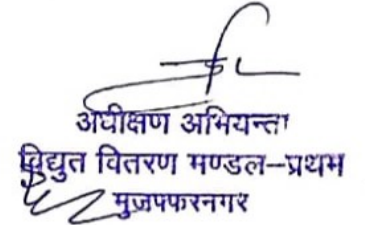 अधीक्षण अभियन्ता
विद्युत वितरण मण्डल–प्रथम
मुज़फ्फरनगर